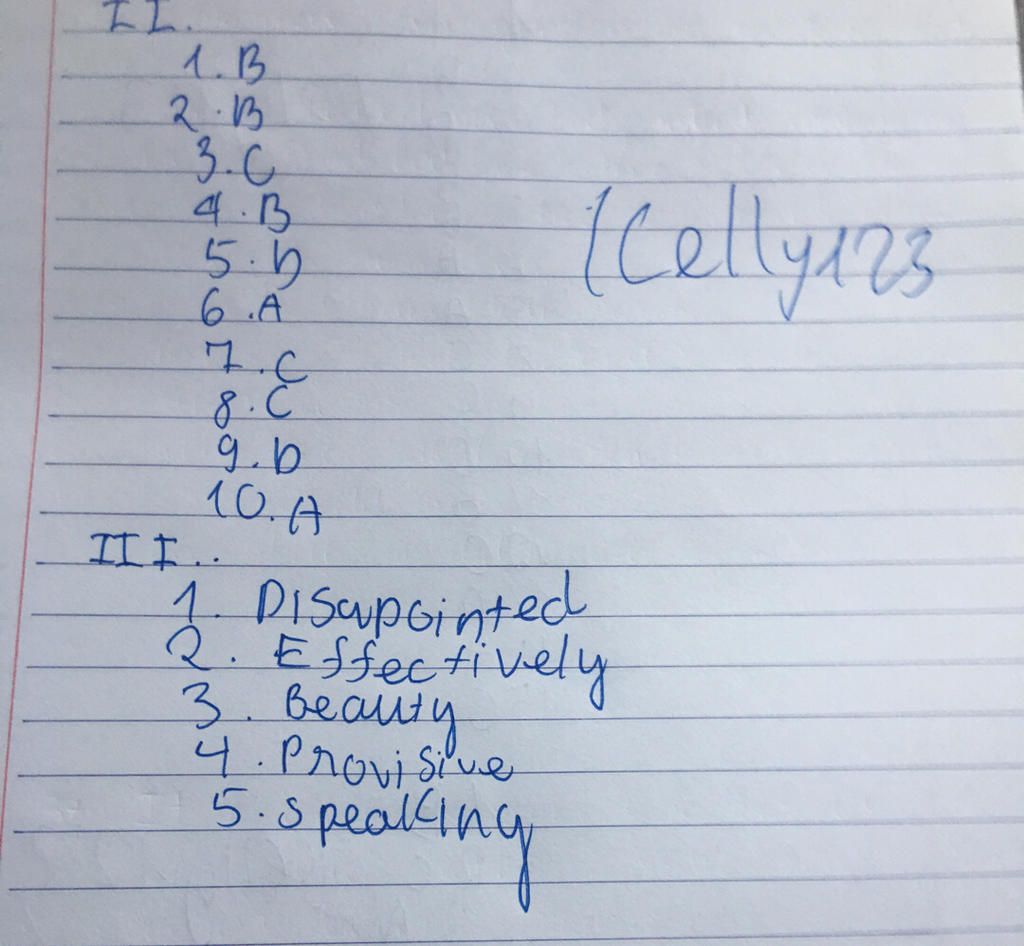 II.
1. B
2. B
3. C
4. B
5. D
6. A
7. C
8. C
9. D
10. A
Kelly123
III..
1. Disapointed
2. Effectively
3. Beauty
4. Provisive
5. speaking